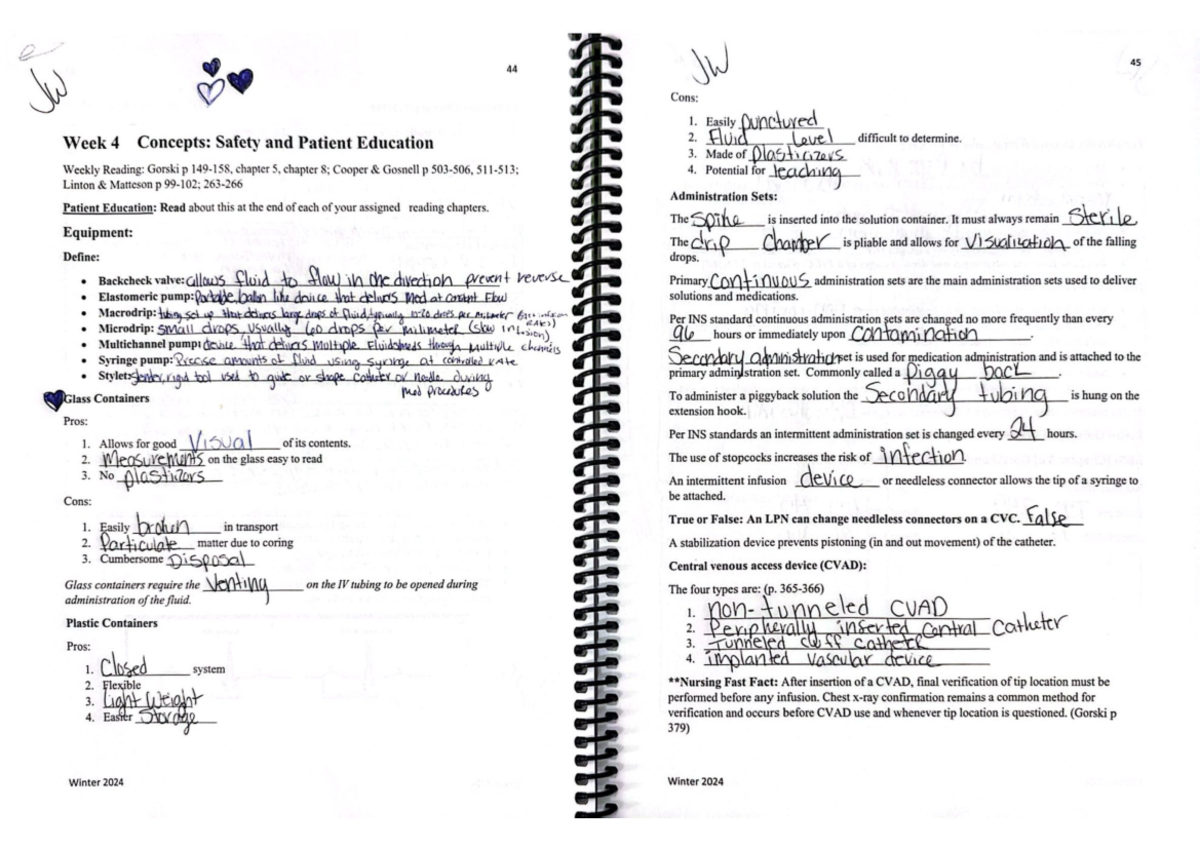 JW
44
Week 4 Concepts: Safety and Patient Education
Weekly Reading: Gorski p 149-158, chapter 5, chapter 8; Cooper & Gosnell p 503-506, 511-513;
Linton & Matteson p 99-102; 263-266
Patient Education: Read about this at the end of each of your assigned reading chapters.
Equipment:
Define:
• Backcheck valve: allows fluid to flow in one direction prevent reverse
• Elastomeric pump: Portable, ballon like device that delivers med at constant flow
• Macrodrip: tubing set up that delivers large drops of fluid, typically 10-20 drops per
• Microdrip: small drops, usually 60 drops per milimeter (slow infusion)
• Multichannel pump: device that delivers multiple fluids/meds through multiple channels
• Syringe pump: Precise amounts of fluid using syringe at controlled rate
• Stylet: slender, rigid tool used to guide or shape catheter or needle during
med procedures
Glass Containers
Pros:
1. Allows for good Visual of its contents.
2. Measurements on the glass easy to read
3. No plasticizors
Cons:
1. Easily broken in transport
2. Particulate matter due to coring
3. Cumbersome Disposal
Glass containers require the Venting on the IV tubing to be opened during
administration of the fluid.
Plastic Containers
Pros:
1. Closed system
2. Flexible
3. Light Weight
4. Easier Storage
Winter 2024
JW
45
Cons:
1. Easily punctured
2. Fluid Level difficult to determine.
3. Made of plasticizers
4. Potential for leaching
Administration Sets:
The Spike is inserted into the solution container. It must always remain Sterile
The drip chamber is pliable and allows for visualization of the falling
drops.
Primary continuous administration sets are the main administration sets used to deliver
solutions and medications.
Per INS standard continuous administration sets are changed no more frequently than every
96 hours or immediately upon contamination.
Secondary administration set is used for medication administration and is attached to the
primary administration set. Commonly called a piggy back.
To administer a piggyback solution the Secondary tubing is hung on the
extension hook.
Per INS standards an intermittent administration set is changed every 24 hours.
The use of stopcocks increases the risk of infection
An intermittent infusion device or needleless connector allows the tip of a syringe to
be attached.
True or False: An LPN can change needleless connectors on a CVC. False
A stabilization device prevents pistoning (in and out movement) of the catheter.
Central venous access device (CVAD):
The four types are: (p. 365-366)
1. non-tunneled CVAD
2. Peripherally inserted Central Catheter
3. Tunneled cuff catheter
4. implanted vascular device
**Nursing Fast Fact: After insertion of a CVAD, final verification of tip location must be
performed before any infusion. Chest x-ray confirmation remains a common method for
verification and occurs before CVAD use and whenever tip location is questioned. (Gorski p
379)
Winter 2024